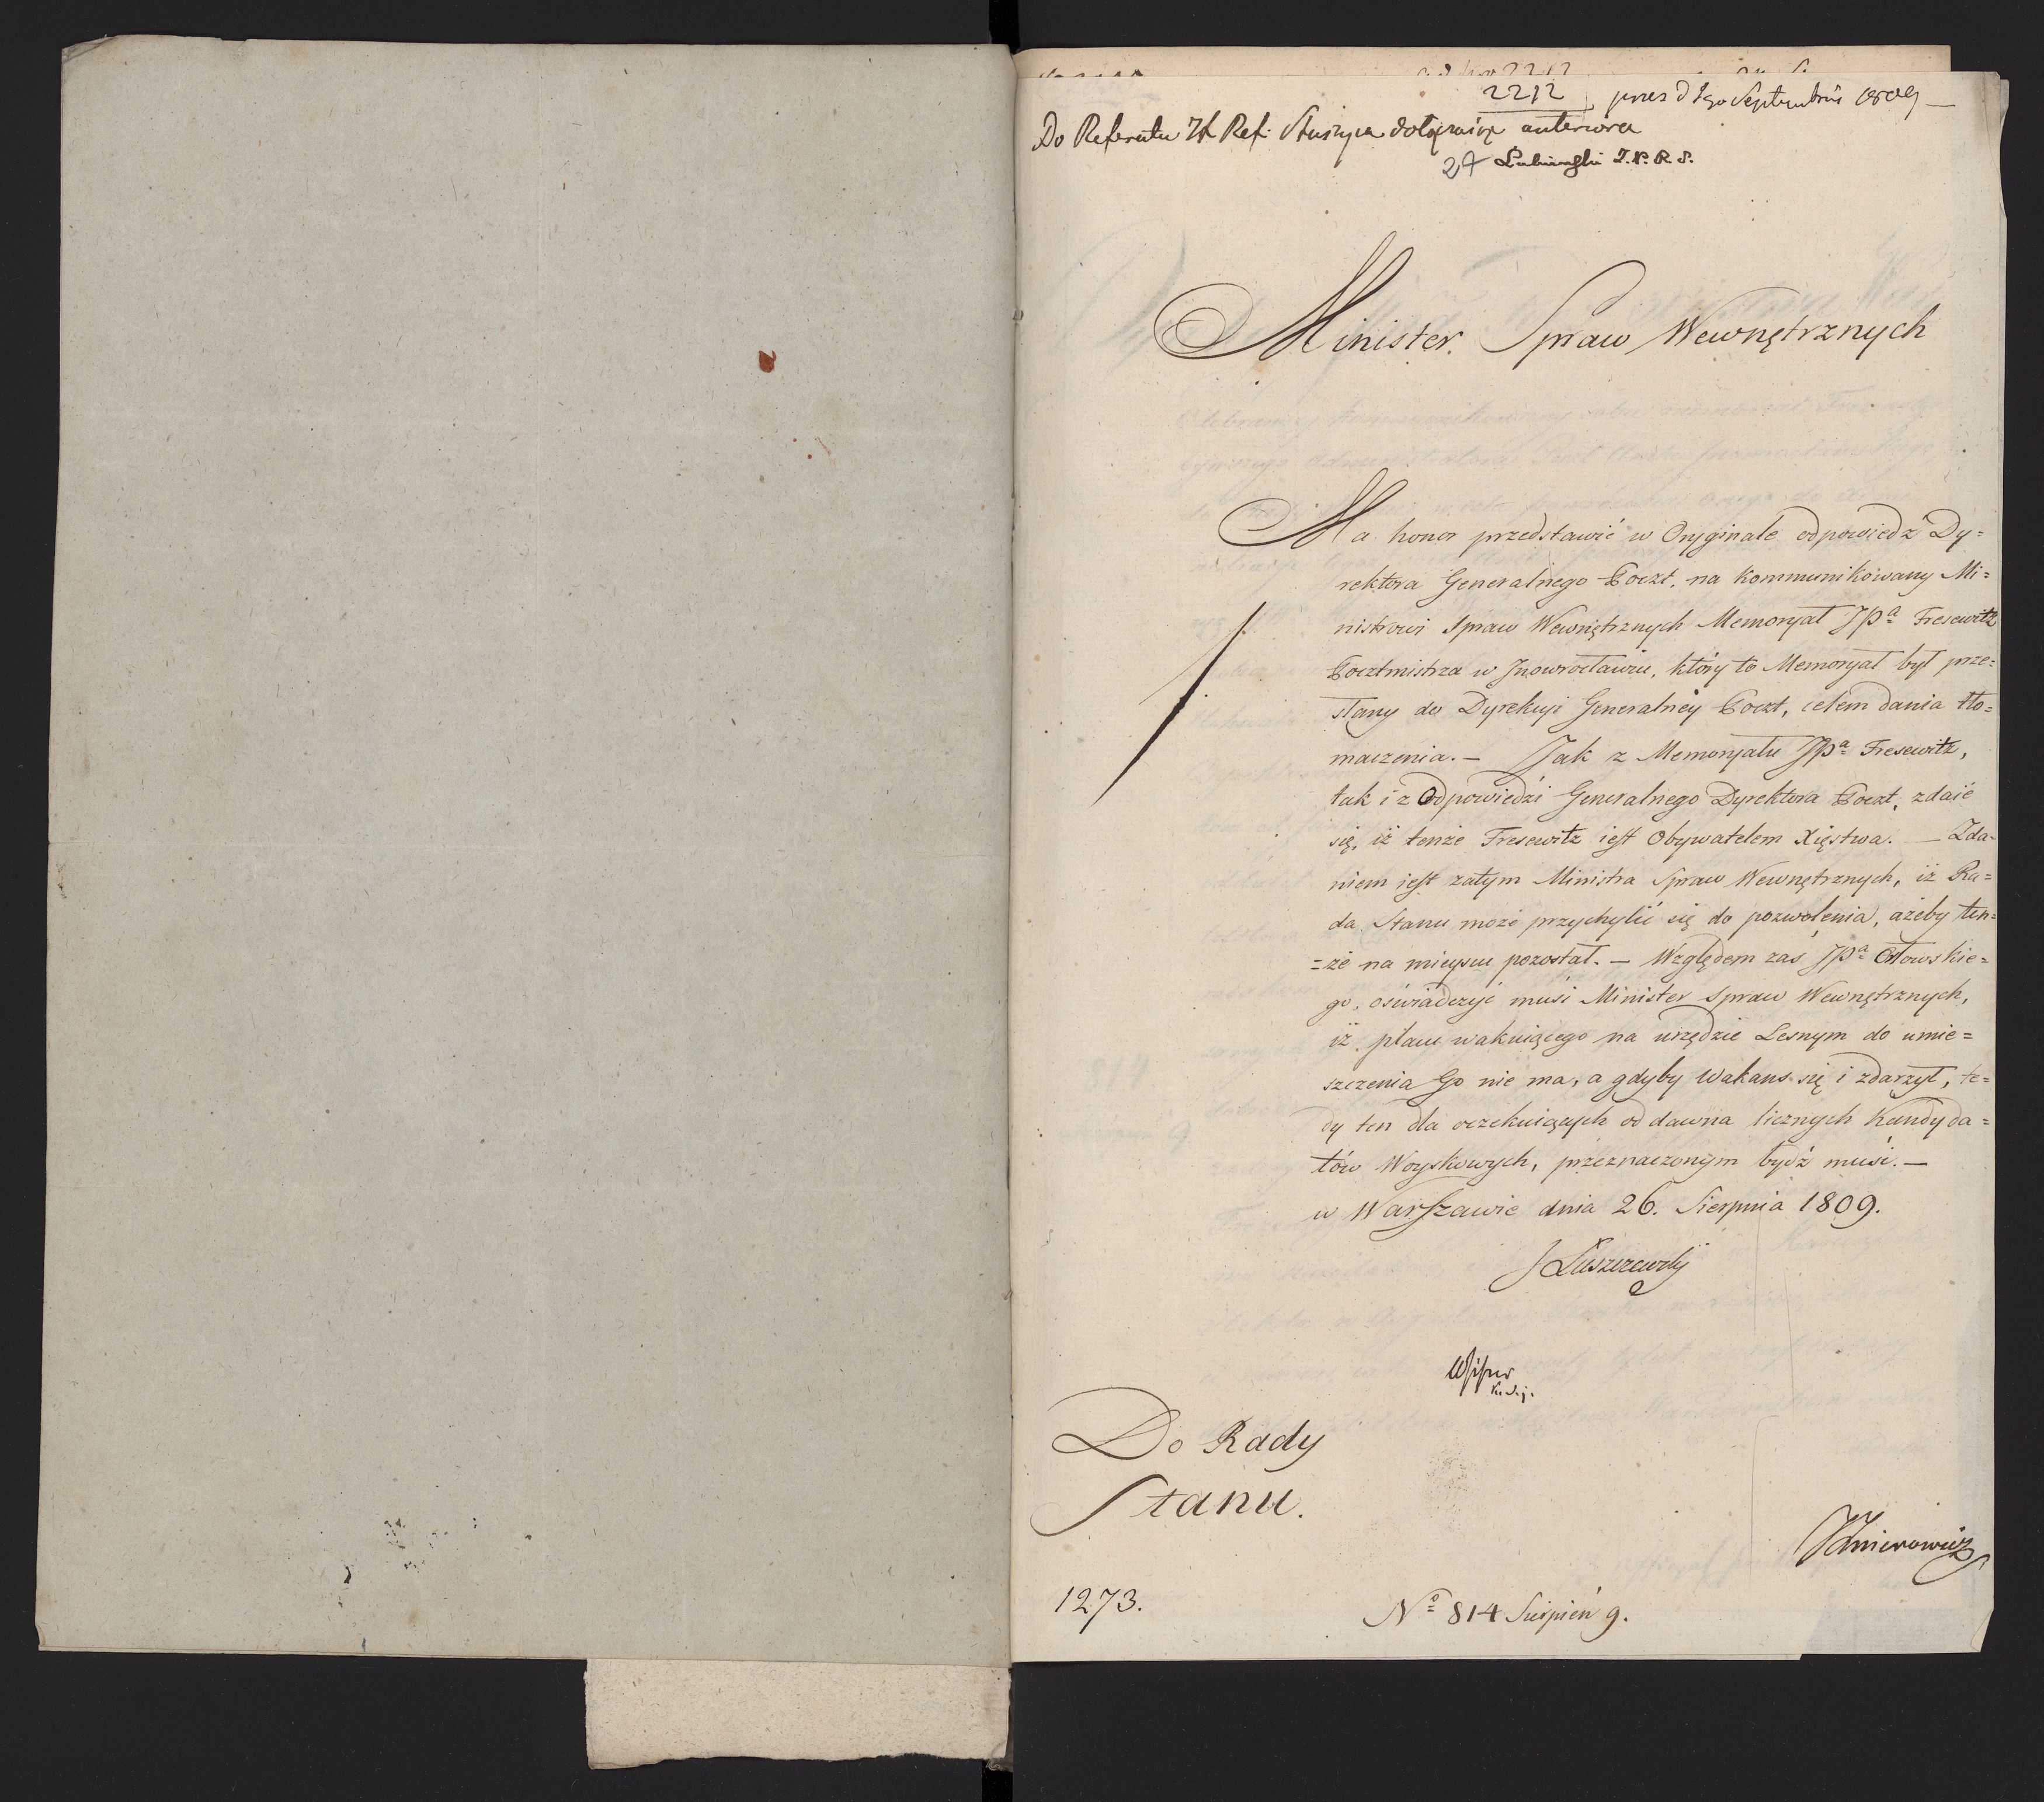 2212 pres d 1go Septembris 1809
Do Referatu JP. Ref: Staszyca dołączaiąc anteriora
24 Łubieński
Minister Spraw Wewnętrznych
Ma honor przedstawić w Oryginale odpowiedź Dy=
rektora Generalnego Poczt, na kommunikowany Mi=
nistrowi Spraw Wewnętrznych Memoryał JPa Fresewitz
Pocztmistrza w Jnowrocławiu, który to Memoryał był prze=
słany do Dyrekcyi Generalney Poczt, celem dania tło=
maczenia. — Jak z Memoryału JPa Fresewitz,
tak i z Odpowiedzi Generalnego Dyrektora Poczt, zdaie
się, iż tenże Fresewitz iest Obywatelem Xięstwa. — Zda=
niem iest zatym Ministra Spraw Wewnętrznych, iż Ra=
da Stanu może przychylić się do pozwolenia, ażeby ten=
=że na mieyscu pozostał. — Względem zaś JPa Ołowskie=
go, oświadczyć musi Minister Spraw Wewnętrznych,
iż placu wakuiącego na urzędzie Lesnym do umie=
szczenia Go nie ma, a gdyby Wakans się i zdarzył, te=
dy ten dla oczekuiących od dawna licznych Kandyda=
tów Woyskowych, przeznaczonym bydź musi. —
w Warszawie dnia 26. Sierpnia 1809.
J Łuszczewsky
Do Rady
Stanu.
1273.
No 814 Sierpień 9.